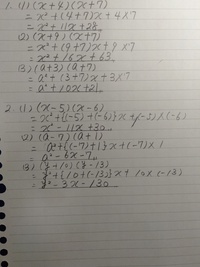 1. (1) (x+4)(x+7)
= x²+(4+7)x+4×7
= x²+11x+28
(2) (x+9)(x+7)
= x²+(9+7)x+9×7
= x²+16x+63
(3) (a+3)(a+7)
= a²+(3+7)x+3×7
= a²+10x+21
2. (1) (x-5)(x-6)
= x²+{(-5)+(-6)}x+(-5)×(-6)
= x²-11x+30
(2) (a-7)(a+1)
= a²+{(-7)+1}x+(-7)×1
= a²-6x-7
(3) (y+10)(y-13)
= y²+{10+(-13)}x+10×(-13)
= y²-3x-130